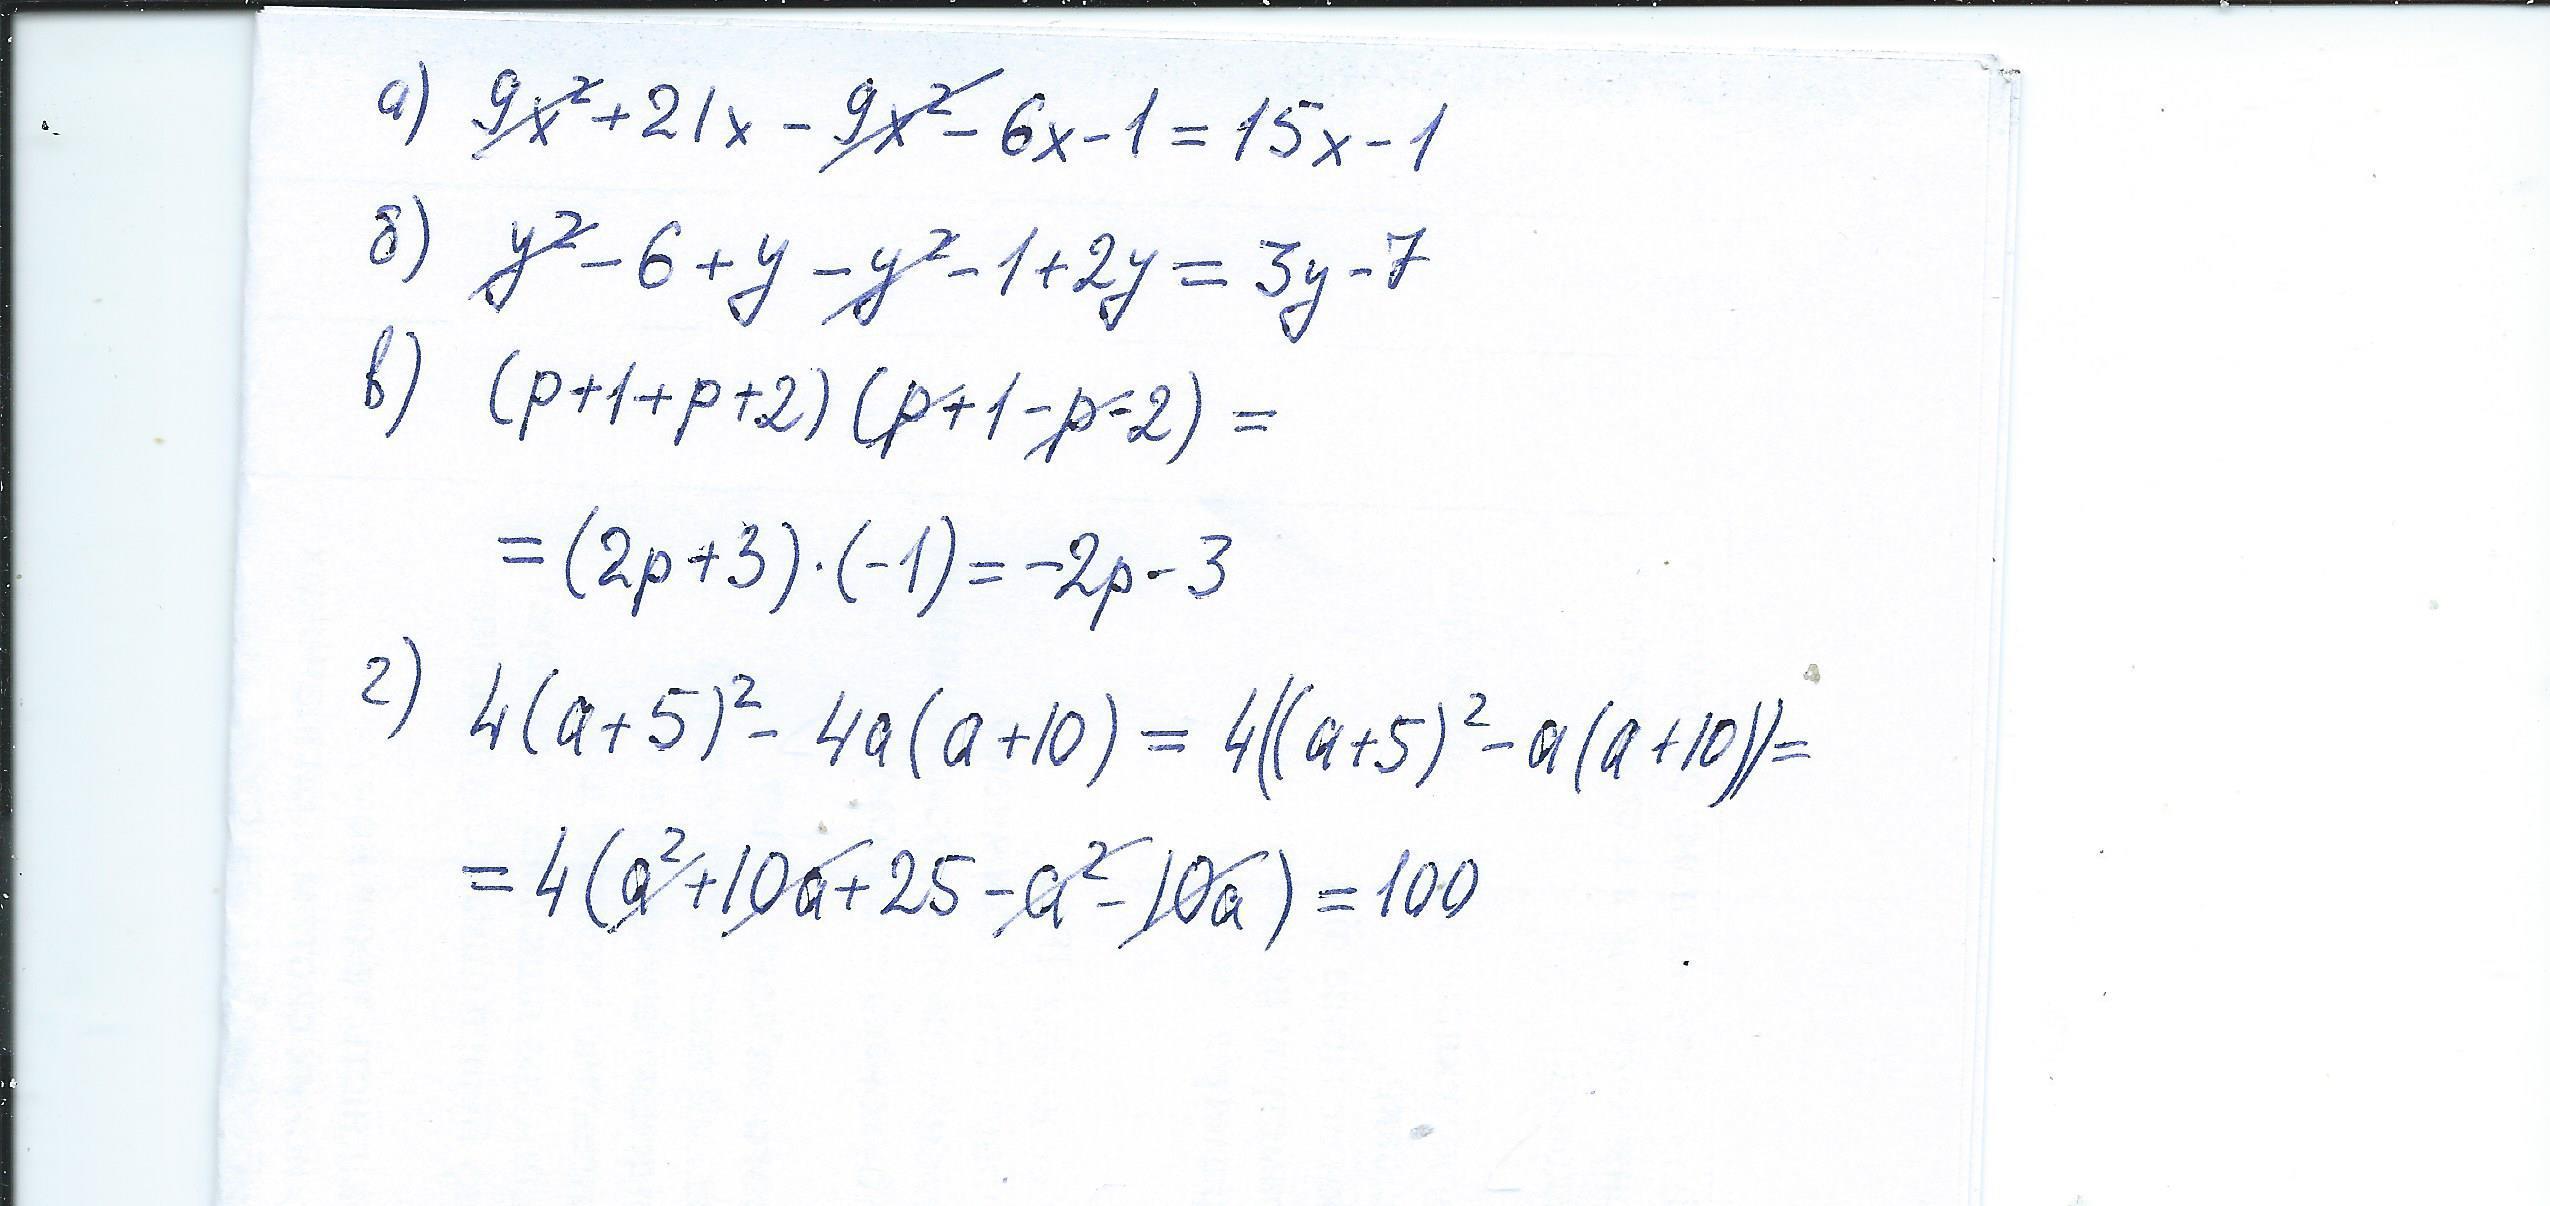 а) 9x²+21x-9x²-6x-1=15x-1
б) y²-6+y-y²-1+2y=3y-7
в) (p+1+p+2)(p+1-p-2)=
=(2p+3)·(-1)=-2p-3
г) 4(a+5)²-4a(a+10)=4((a+5)²-a(a+10))=
=4(a²+10a+25-a²-10a)=100